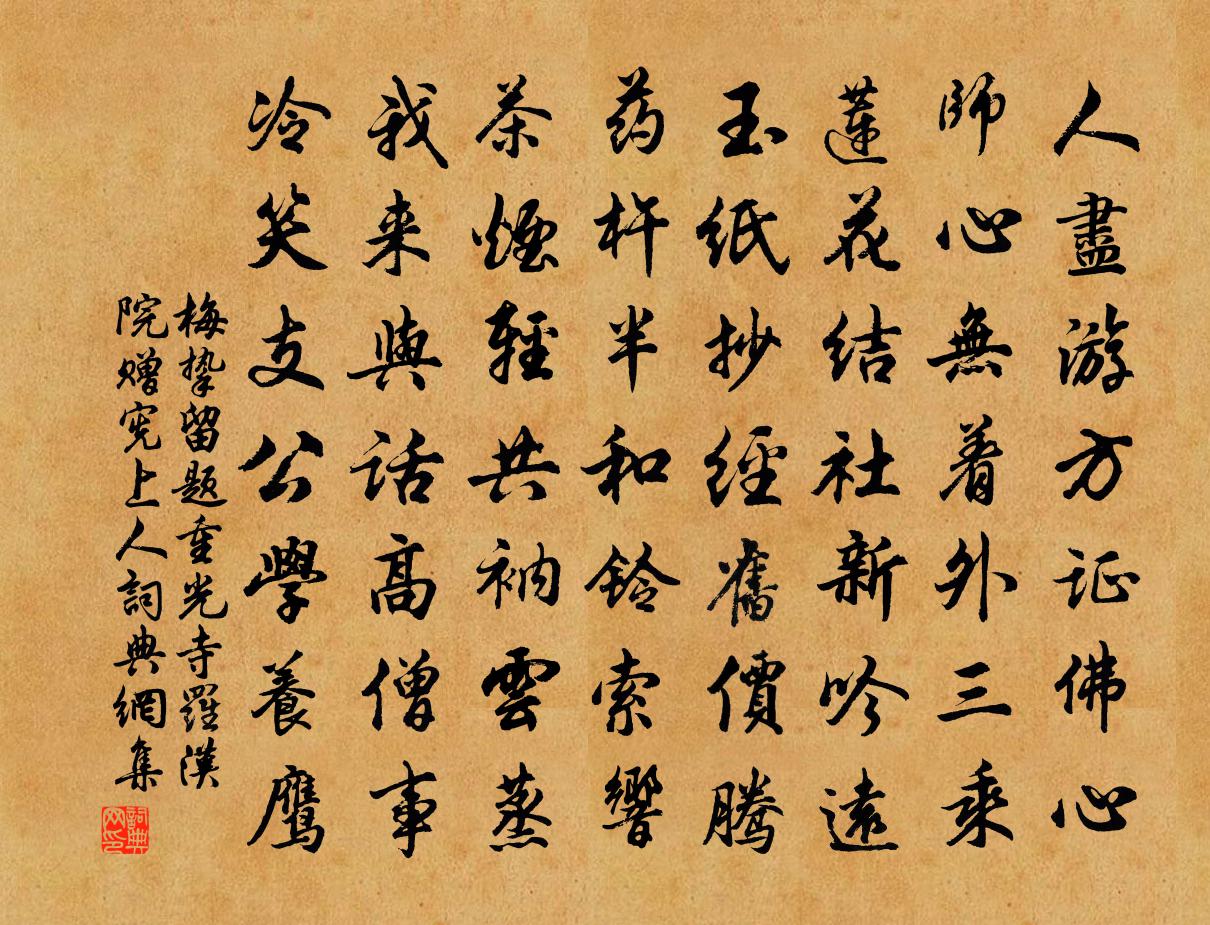 人盡游方证佛心
師心無着外三乘
蓮花結社新吟遠
玉紙抄經舊價騰
药杵半和鈴索響
茶煙輕共衲雲蒸
我来與話高僧事
冷笑支公學養鷹
梅挚留题重光寺羅漢
院赠宪上人詞典網集
詞典
网印